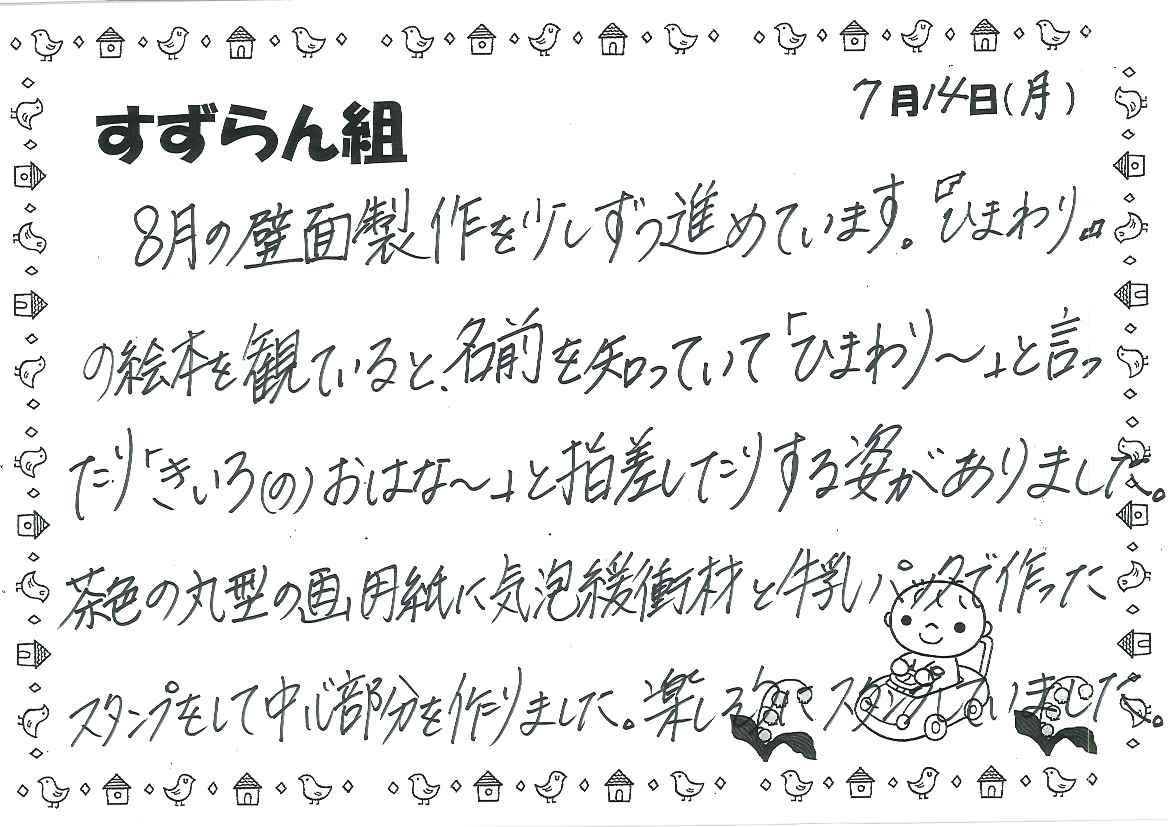 7月14日(月)
すずらん組
8月の壁面製作を少しずつ進めています。『ひまわり』
の絵本を観ていると、名前を知っていて「ひまわり～」と言っ
たり「きいろ(の)おはな～」と指差したりする姿がありました。
茶色の丸型の画用紙に気泡緩衝材と牛乳パックで作った
スタンプをして中心部分を作りました。楽しそうに スタンプしていました。